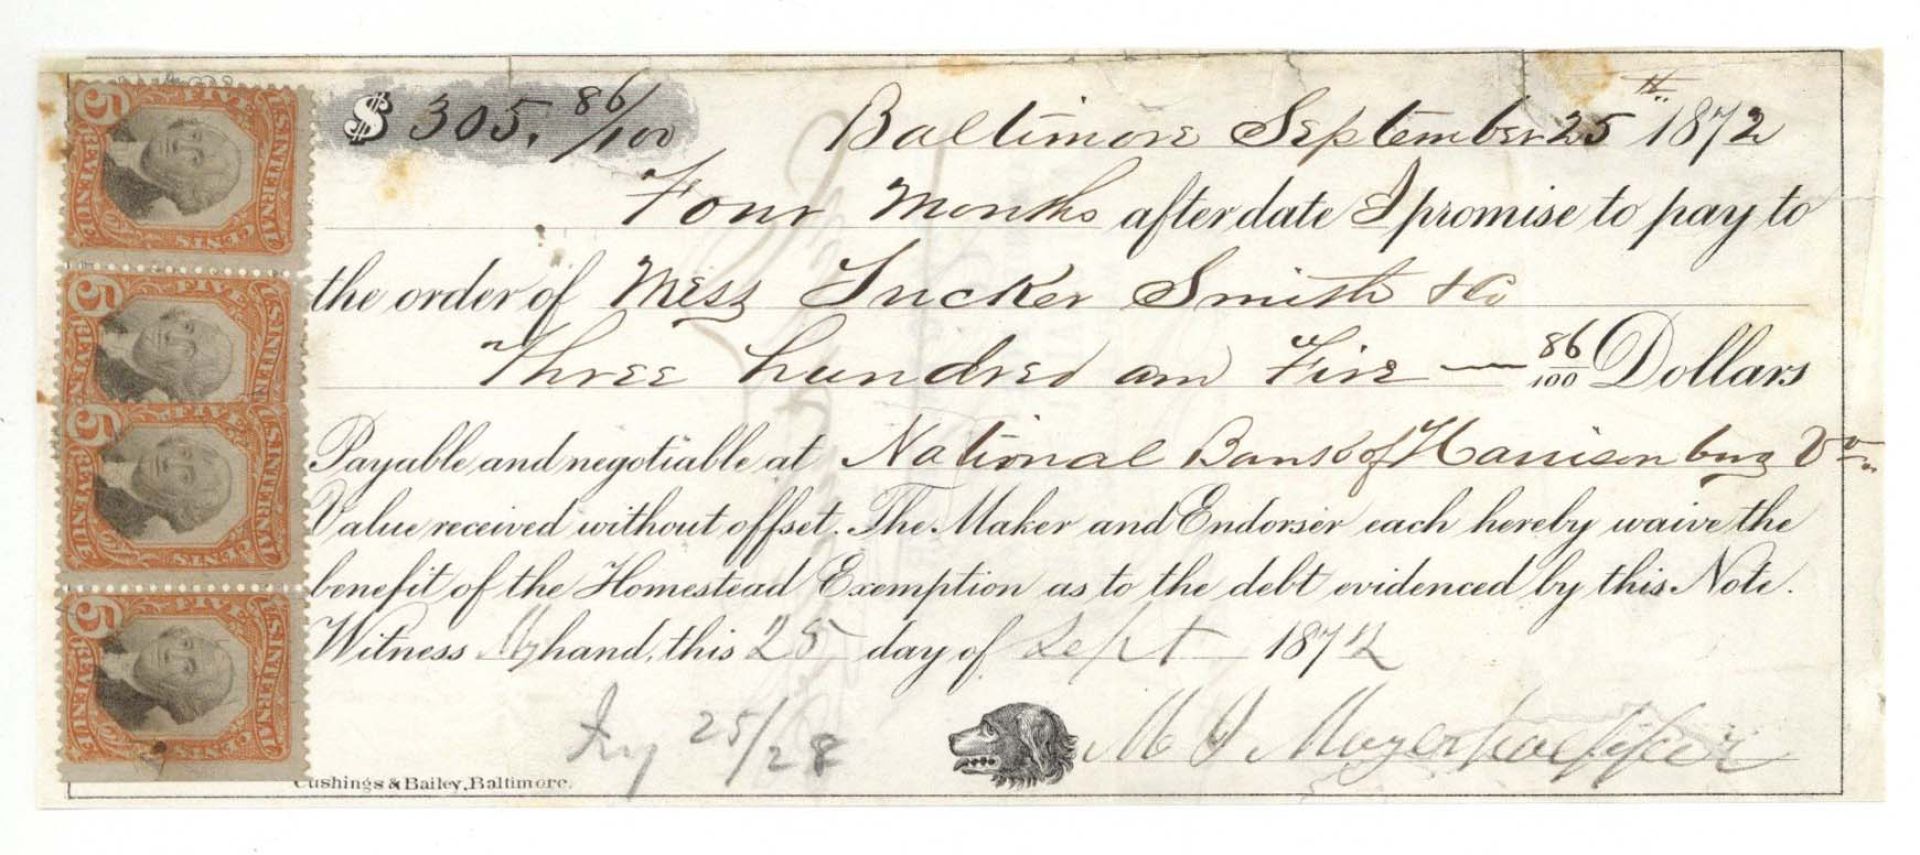 $ 305. 86/100 Baltimore September 25th 1872
Four Months after date I promise to pay to
the order of Mess Tucker Smith & Co
Three hundred an Five — 86/100 Dollars
Payable and negotiable at National Bank of Harrisonburg Va
Value received without offset. The Maker and Endorser each hereby waive the
benefit of the Homestead Exemption as to the debt evidenced by this Note.
Witness My hand, this 25 day of Sept 1872
25/28
M
Cushings & Bailey, Baltimore.
FIVE
5 INTER. REVENUE
FIVE CENTS
5 INTER. REVENUE
FIVE
5 INTER. REVENUE
FIVE CENTS
5 INTER. REVENUE
FIVE CENTS